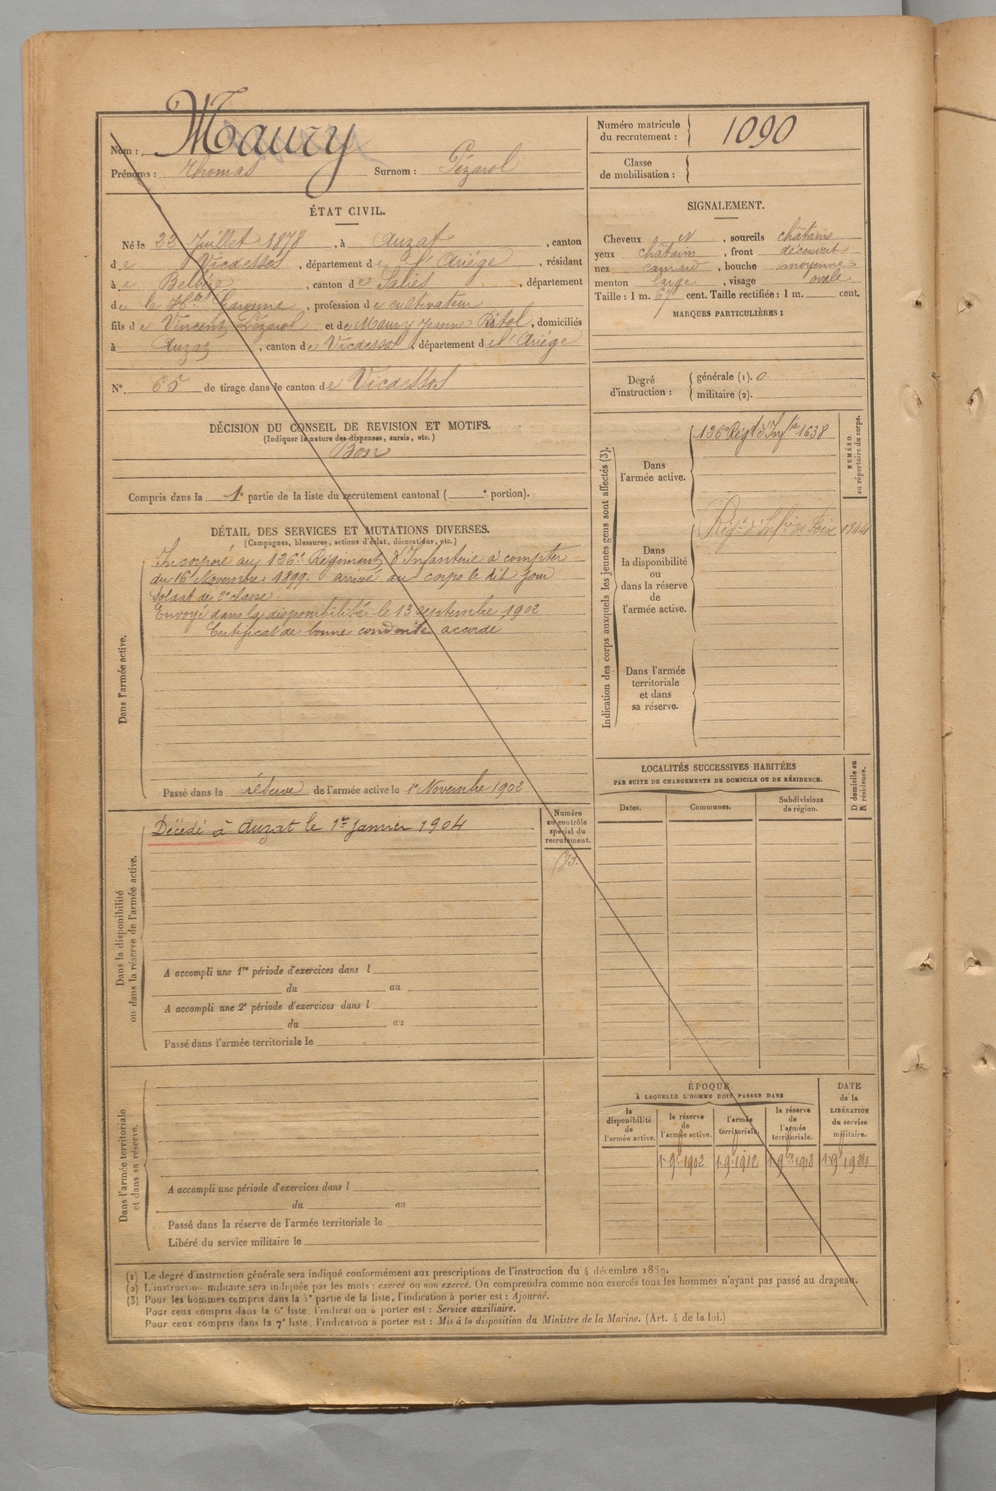 Maury
Nom :
Prénoms : Thomas Surnom : Pézarol
Numéro matricule
du recrutement : 1090
Classe
de mobilisation :
ÉTAT CIVIL.
Né le 22 Juillet 1878, à Auzat, canton
de Vicdessos, département de l'Ariège, résidant
à, canton de Salies, département
de la Hte Garonne, profession de cultivateur
fils de Vincent Pézarol et de Maury Jeanne, domiciliés
à Auzat, canton de Vicdessos, département de l'Ariège
N° 65 de tirage dans le canton de Vicdessos
DÉCISION DU CONSEIL DE REVISION ET MOTIFS.
(Indiquer la nature des dispenses, sursis, etc.)
Bon
Compris dans la 1e partie de la liste du recrutement cantonal ( e portion).
DÉTAIL DES SERVICES ET MUTATIONS DIVERSES.
(Campagnes, blessures, actions d'éclat, décorations, etc.)
Dans l'armée active.
Incorporé au 126e Régiment d'Infanterie à compter
du 16 Novembre 1899. arrivé au corps le dit jour
soldat de 2e classe.
Envoyé dans la disponibilité le 13 septembre 1902
Certificat de bonne conduite accordé
Passé dans la réserve de l'armée active le 1er Novembre 1902
Dans la disponibilité
ou dans la réserve de l'armée active.
Décédé à Auzat le 1er janvier 1904
Numéro
au contrôle
spécial du
recrutement.
A accompli une 1re période d'exercices dans l
du au
A accompli une 2e période d'exercices dans l
du au
Passé dans l'armée territoriale le
Dans l'armée territoriale
et dans sa réserve.
A accompli une période d'exercices dans l
du au
Passé dans la réserve de l'armée territoriale le
Libéré du service militaire le
SIGNALEMENT.
Cheveux et, sourcils châtains
yeux châtains, front découvert
nez camard, bouche moyenne
menton large, visage ovale
Taille : 1 m. 67 cent. Taille rectifiée : 1 m. cent.
MARQUES PARTICULIÈRES :
Degré
d'instruction :
générale (1). 0
militaire (2).
Indication des corps auxquels les jeunes gens sont affectés (3).
NUMÉRO
au répertoire du corps.
Dans
l'armée active.
126e Régt d'Inftie 1638
Dans
la disponibilité
ou
dans la réserve
de
l'armée active.
Régt d'Infie de Foix
Dans l'armée
territoriale
et dans
sa réserve.
LOCALITÉS SUCCESSIVES HABITÉES
PAR SUITE DE CHANGEMENTS DE DOMICILE OU DE RÉSIDENCE.
Dates. Communes. Subdivisions
de région.
D domicile ou
R résidence.
ÉPOQUE
À LAQUELLE L'HOMME DOIT PASSER DANS
la
disponibilité
de
l'armée active.
la réserve
de
l'armée active.
l'armée
territoriale.
la réserve
de
l'armée
territoriale.
DATE
de la
LIBÉRATION
du service
militaire.
1er 9bre 1902 1er 9bre 1912 1er 9bre 1918 1er 9bre 1924
(1) Le degré d'instruction générale sera indiqué conformément aux prescriptions de l'instruction du 4 décembre 1889.
(2) L'instruction militaire sera indiquée par les mots : exercé ou non exercé. On comprendra comme non exercés tous les hommes n'ayant pas passé au drapeau.
(3) Pour les hommes compris dans la 5e partie de la liste, l'indication à porter est : Ajourné.
Pour ceux compris dans la 6e liste, l'indication à porter est : Service auxiliaire.
Pour ceux compris dans la 7e liste, l'indication à porter est : Mis à la disposition du Ministre de la Marine. (Art. 4 de la loi.)